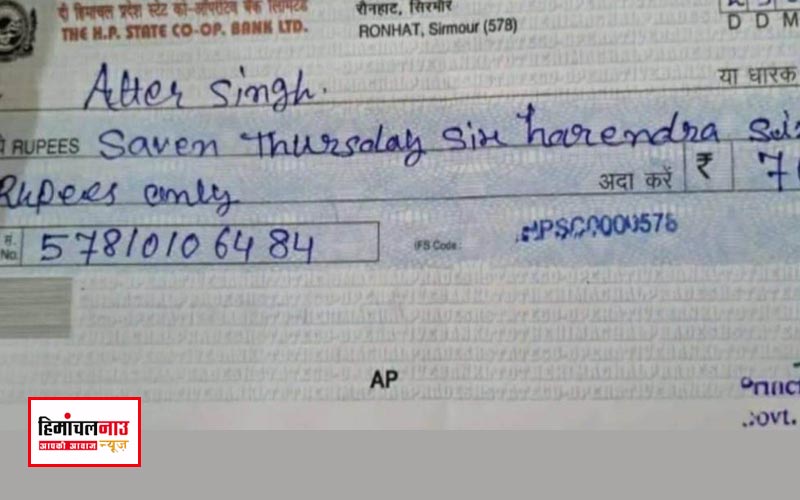 दी हिमाचल प्रदेश स्टेट को-ऑपरेटिव बैंक लिमिटेड
THE H.P. STATE CO-OP. BANK LTD.
रौनहाट, सिरमौर
RONHAT, Sirmour (578)
D D M
Atter Singh.
या धारक
RUPEES Saven Thursday Six harendra
Rupees only
अदा करें ₹ 7
No. 57810106484
IFS Code:
AP
हिमांचलनाउ
आपकी आवाज न्यूज़